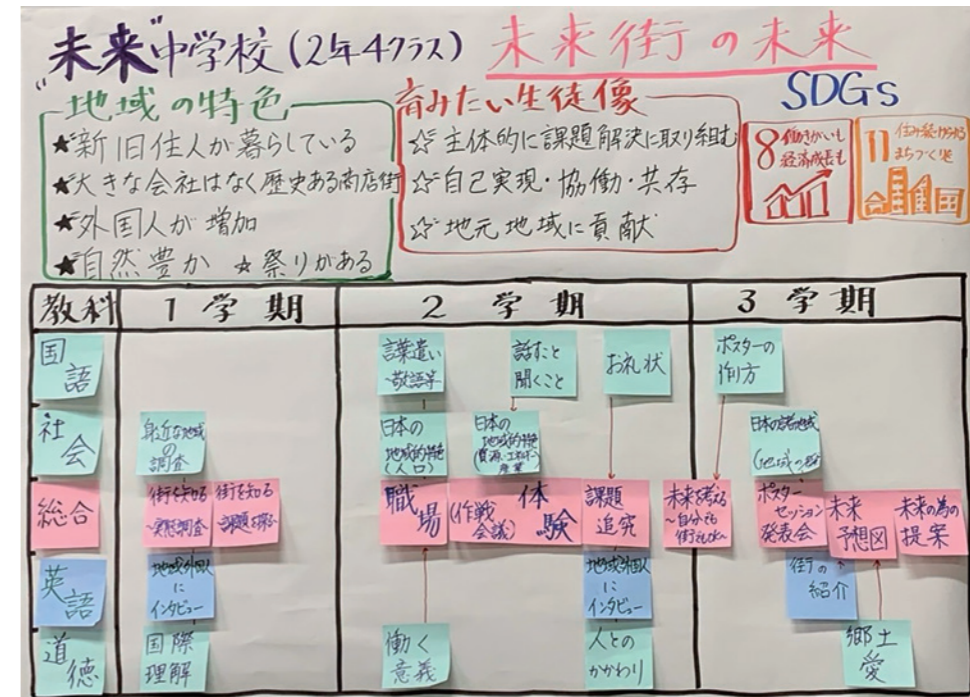 "未来"中学校(2年4クラス) 未来街の未来
地域の特色
★新旧住人が暮らしている
★大きな会社はなく歴史ある商店街
★外国人が増加
★自然豊か ☆祭りがある
育みたい生徒像
☆主体的に課題解決に取り組む
☆自己実現・協働・共存
☆地元地域に貢献
SDGs
8 働きがいも
経済成長も
11 住み続けられる
まちづくりを
教科 1学期 2学期 3学期
国語
言葉遣い
敬語等
話すこと
聞くこと
お礼状
ポスターの
作り方
社会
身近な地域
の
調査
日本の
地域的特色
(人口)
日本の
地域的特色
(資源・エネルギー
産業)
日本の諸地域
総合
街を知る
〜実態調査
街を知る
職場
(作戦
会議)
体験
課題
追究
未来を考える
〜自分でも
ポスター
セッション
発表会
未来
予想図
未来の為の
提案
英語
地域外国人
に
インタビュー
地域外国人
に
インタビュー
街の
紹介
道徳
国際
理解
働く
意義
人との
かかわり
郷土
愛